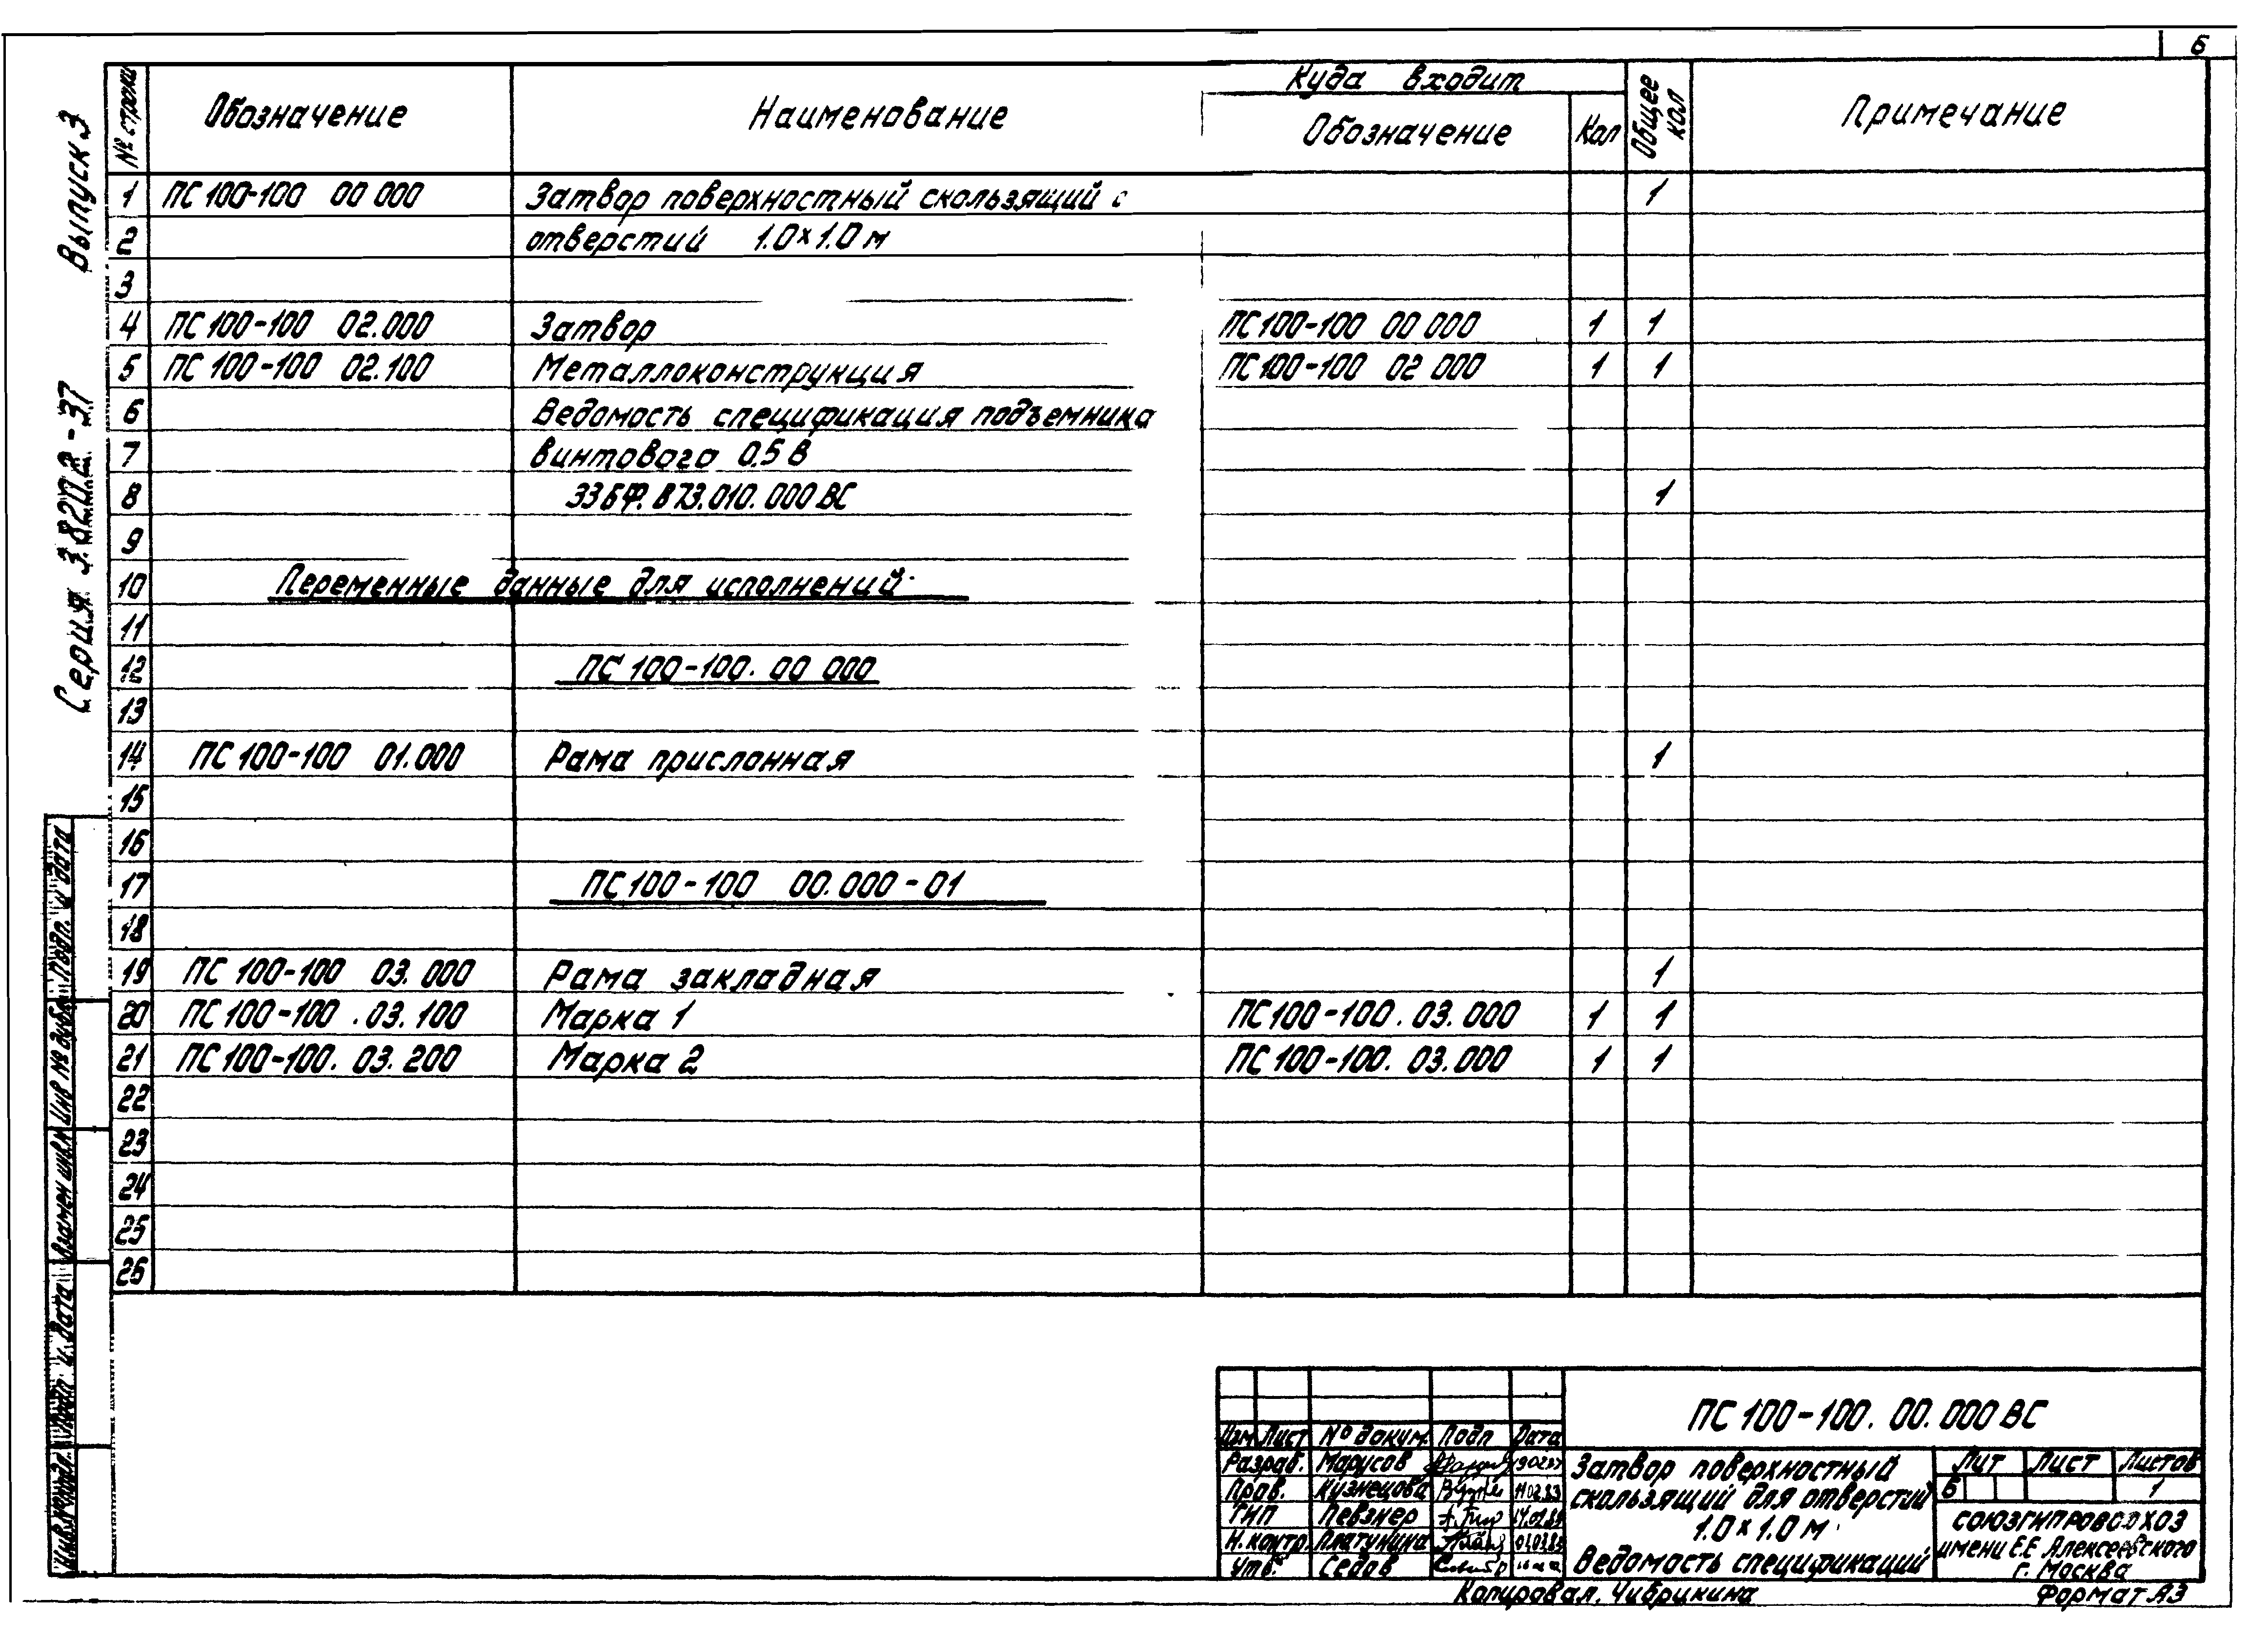 6
Серия 3.820.2-37 Выпуск 3
№ строки Обозначение Наименование Куда входит Общее кол Примечание
Обозначение Кол
1 ПС 100-100 00 000 Затвор поверхностный скользящий 1
2 отверстий 1.0×1.0 м
3
4 ПС 100-100 02.000 Затвор ПС 100-100 00 000 1 1
5 ПС 100-100 02.100 Металлоконструкция ПС 100-100 02 000 1 1
6 Ведомость спецификация подъемника
7 винтового 0.5 В
8 ЗЗБФ.В73.010.000 ВС 1
9
10 Переменные данные для исполнений
11
12 ПС 100-100. 00 000
13
14 ПС 100-100 01.000 Рама прислонная 1
15
16
17 ПС 100-100 00.000-01
18
19 ПС 100-100 03.000 Рама закладная 1
20 ПС 100-100 .03.100 Марка 1 ПС 100-100. 03.000 1 1
21 ПС 100-100. 03.200 Марка 2 ПС 100-100. 03.000 1 1
22
23
24
25
26
Подп. и дата
Инв № дубл
Взамен инв.№
Подп. и дата
Инв.№ подл.
ПС 100-100. 00. 000 ВС
Изм Лист № докум. Подп Дата
Разраб. Марусов
Пров. Кузнецова 11.02.83
ГИП Певзнер
Н.контр. Платунина
Утв. Седов
Затвор поверхностный
скользящий для отверстий
1.0×1.0 м
Ведомость спецификаций
Лит Лист Листов
Б 1
СОЮЗГИПРОВОДХОЗ
имени Е.Е Алексеевского
г. Москва
Копировал. Чибрикина Формат А3